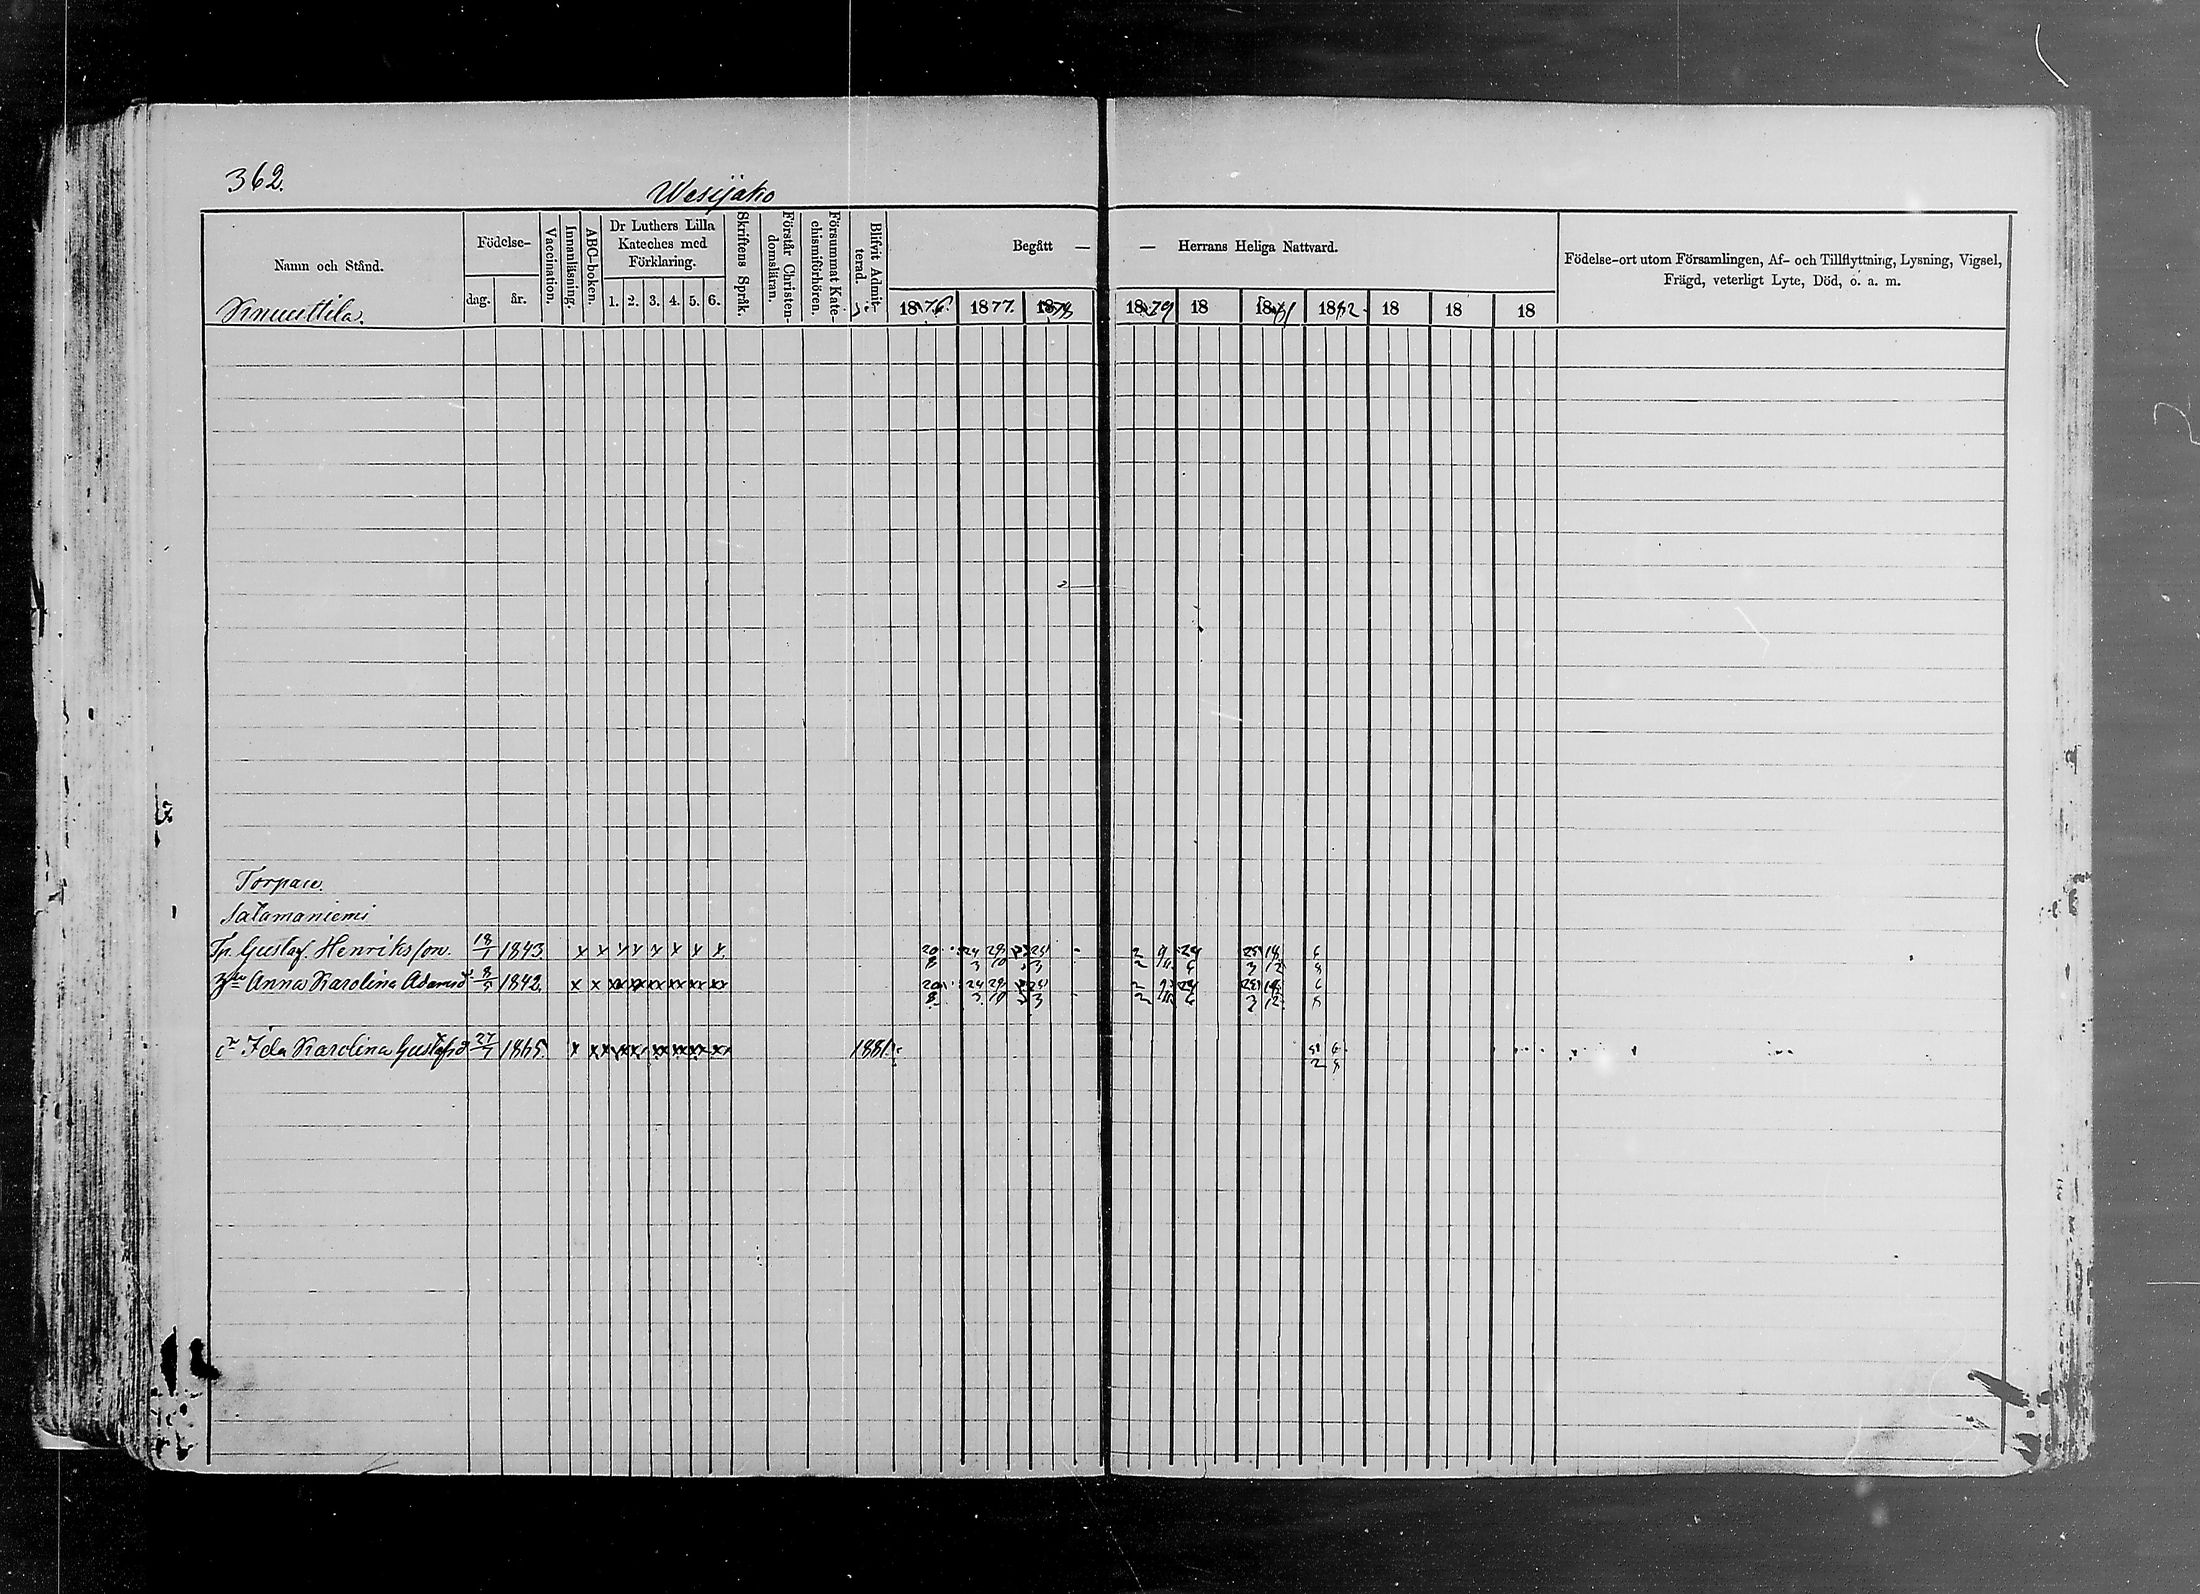 362.
Wesijako
Namn och Stånd.
Knuuttila.
Födelse-
dag. år.
Vaccination.
Innanläsning.
ABC-boken.
Dr Luthers Lilla
Kateches med
Förklaring.
1. 2. 3. 4. 5. 6.
Skriftens Språk.
Förstår Christen-
domsläran.
Försummat Kate-
chismiförhören.
Blifvit Admit-
terad.
Begått — — Herrans Heliga Nattvard.
1876. 1877. 1878 1879 18 1881 1882. 18 18 18
Födelse-ort utom Församlingen, Af- och Tillflyttning, Lysning, Vigsel,
Frägd, veterligt Lyte, Död, o. a. m.
Torpare.
Salamaniemi
Tp. Gustaf Henriksson. 18/1 1843. x x x x x x x x 20/8 24/3 29/10 24/3 2/2 9/11 24/6 25/3 18/12 6/8
Anna Karolina Adamsd 8/5 1842. x x xx xx xx xx xx xx 20/8 24/3 29/10 24/3 2/2 9/11 24/6 25/3 18/12 6/8
Ida Karolina Gustafsd 27/7 1865. x xx xx xx xx xx xx xx 1881. 6/8